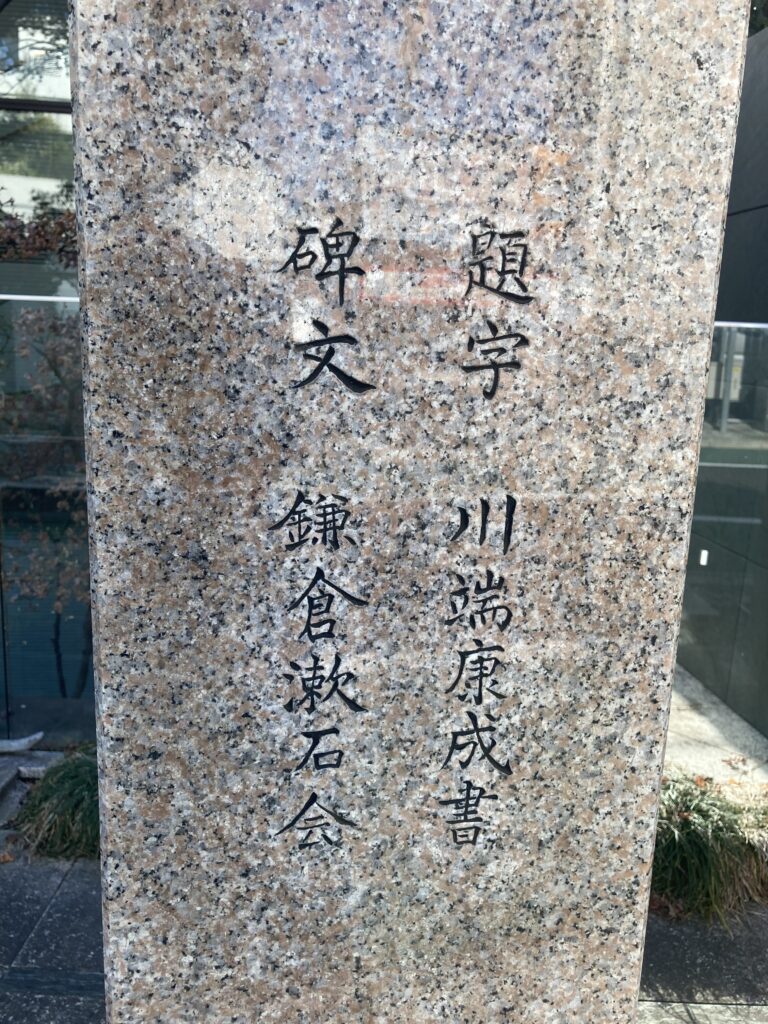 題字 川端康成書
碑文 鎌倉漱石会